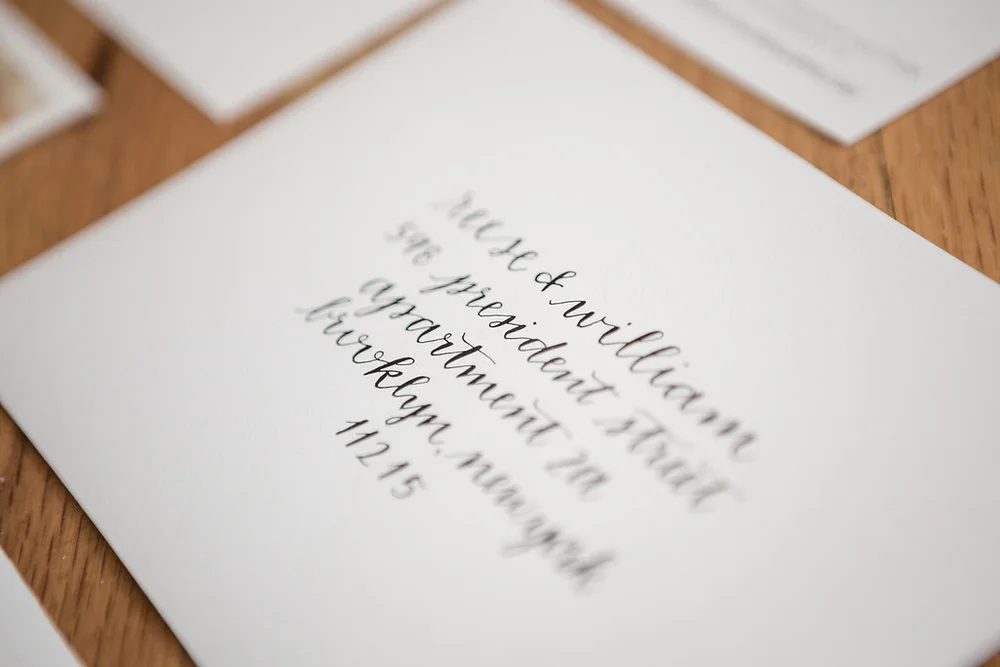 reese & william
598 president street
apartment 7a
brooklyn, new york
11215